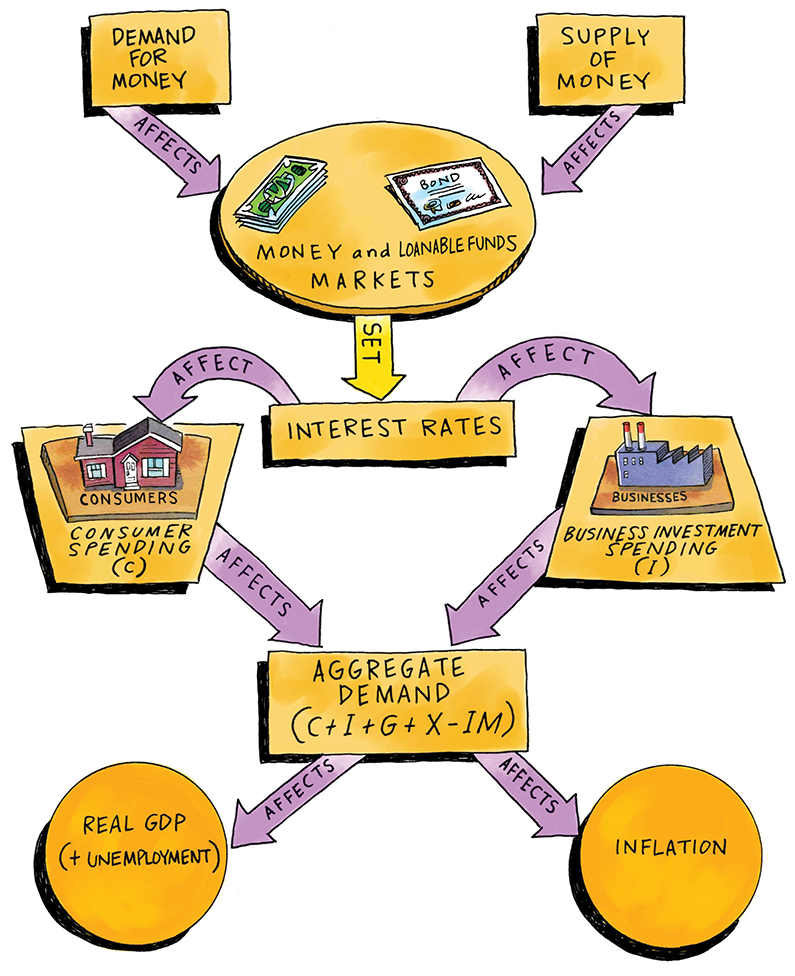 DEMAND
FOR
MONEY
SUPPLY
OF
MONEY
AFFECTS
AFFECTS
BOND
MONEY and LOANABLE FUNDS
MARKETS
SET
AFFECT
AFFECT
INTEREST RATES
CONSUMERS
CONSUMER
SPENDING
(C)
BUSINESSES
BUSINESS INVESTMENT
SPENDING
(I)
AFFECTS
AFFECTS
AGGREGATE
DEMAND
(C+I+G+X-IM)
AFFECTS
AFFECTS
REAL GDP
(+ UNEMPLOYMENT)
INFLATION